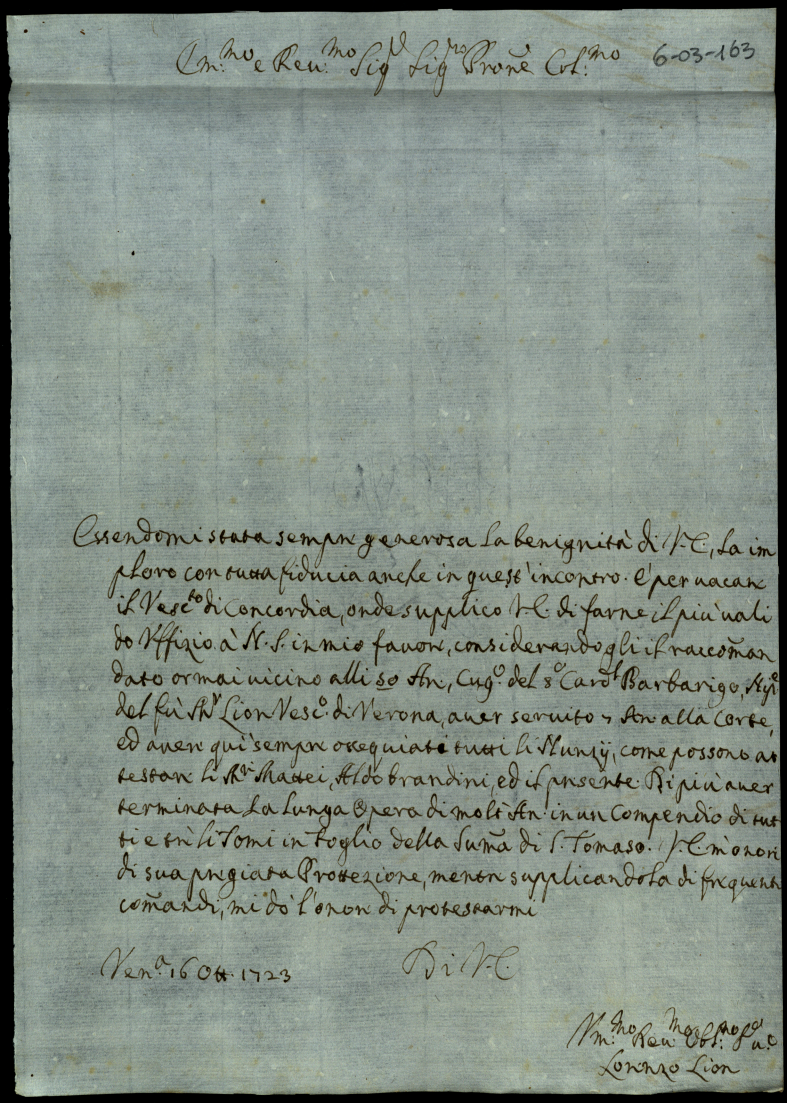 Em:mo e Reu:mo Sigr Sigr Prone Col:mo
6-03-163
Essendomi stata sempre generosa la benignità di V.E., la im
ploro con tutta fiducia anche in quest'incontro. È per uacare
il Vesc.to di Concordia, onde supplico V.E. di farne il più uali
do Uffizio à N.S. in mio fauore, considerandogli il raccoman
dato ormai uicino alli 50 An, Cug.o del Card.l Barbarigo,
del fù Lion Vesc.o di Verona, auer seruito 7 An alla Corte,
ed auer quì sempre ossequiati tutti li Nunzij, come possono at
testare li Mattei, Aldobrandini, ed il presente. Di più auer
terminata la lunga Opera di molt'An. in un Compendio di tut
ti e trè li Tomi in foglio della Suma di S. Tomaso. V.E. m'onori
di sua pregiata Protezione, mentre supplicandola di frequenti
comandi, mi dò l'onor di protestarmi
Ven.a 16 Ott. 1723
Di V.E.
Vm:mo Reu:mo Obl:mo
Lorenzo Lion